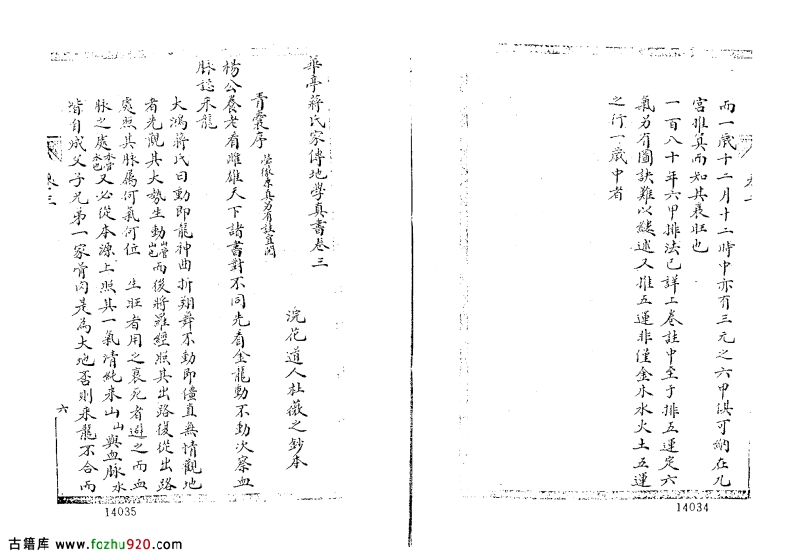 而一歲十二月十二時中亦有三元之六甲俱可納在九
宮推算而知其衰旺也
一百八十年六甲排法已詳上卷註中至于排五運定六
氣另有圖訣難以縷述又推五運非僅金木水火土五運
之行一歲中者
14034
華亭蔣氏家傳地學真書卷三
浣花道人杜薇之鈔本
青囊序
楊公養老看雌雄天下諸書對不同先看金龍動不動次察血
脉認來龍
大鴻蔣氏曰動即龍神曲折翔舞不動即僵直無情觀地
者先觀其大勢生動山管山也而後將羅經照其出路復從出路
處照其脉屬何氣何位 生旺者用之衰死者避之而血
脉之處水管水也又必從本源上照其一氣清純來山山與血脉水
皆自成父子兄弟一家骨肉是為大地否則來龍不合而
卷三
六
14035
古籍库 www.fozhu920.com